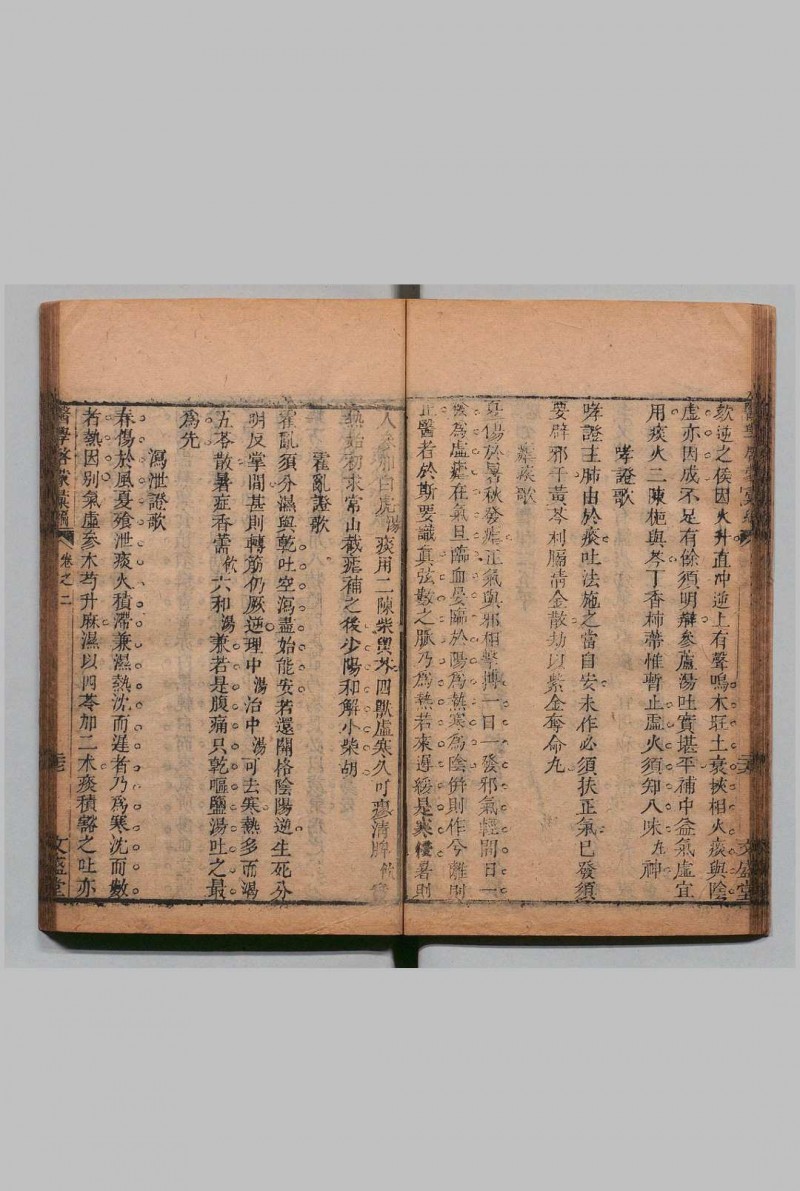 欬逆之侯因火升直冲逆上有聲鳴木旺土衰挾相火痰與陰
虛亦因成不足有餘須明辯參蘆湯吐實堪平補中益氣虛宜
用痰火二陳梔與芩丁香柿蒂惟暫止虛火須知八味神
哮證歌
哮證主肺由於痰吐法施之當自安未作必須扶正氣已發須
要辟邪干黃芩利膈清金散劫以紫金奪命丸
瘧疾歌
夏傷於暑秋發瘧正氣與邪相擊搏一日一發邪氣輕間日一
陰為虛瘧在氣旦臨血晏臨於陽為熱寒為陰併則作兮離則
止醫者於斯要識真弦數之脈乃為熱若來遲緩是寒侵暑則
人參加白虎湯痰用二陳柴與芩四獸虛寒久可瘳清脾飲
熱始初求常山截瘧補之後少陽和解小柴胡
霍亂證歌
霍亂須分濕與乾吐空瀉盡始能安若還關格陰陽逆生死分
明反掌間甚則轉筋仍厥逆理中湯治中湯可去寒熱多而渴
五苓散暑症香薷飲六和湯兼若是腹痛只乾嘔鹽湯吐之最
為先
瀉泄證歌
春傷於風夏飧泄痰火積滯兼濕熱沈而遲者乃為寒沈而數
者熱因別氣虛參朮芍升麻濕以四苓加二朮痰積豁之吐亦
醫學啓蒙彙編 卷之二 文盛堂